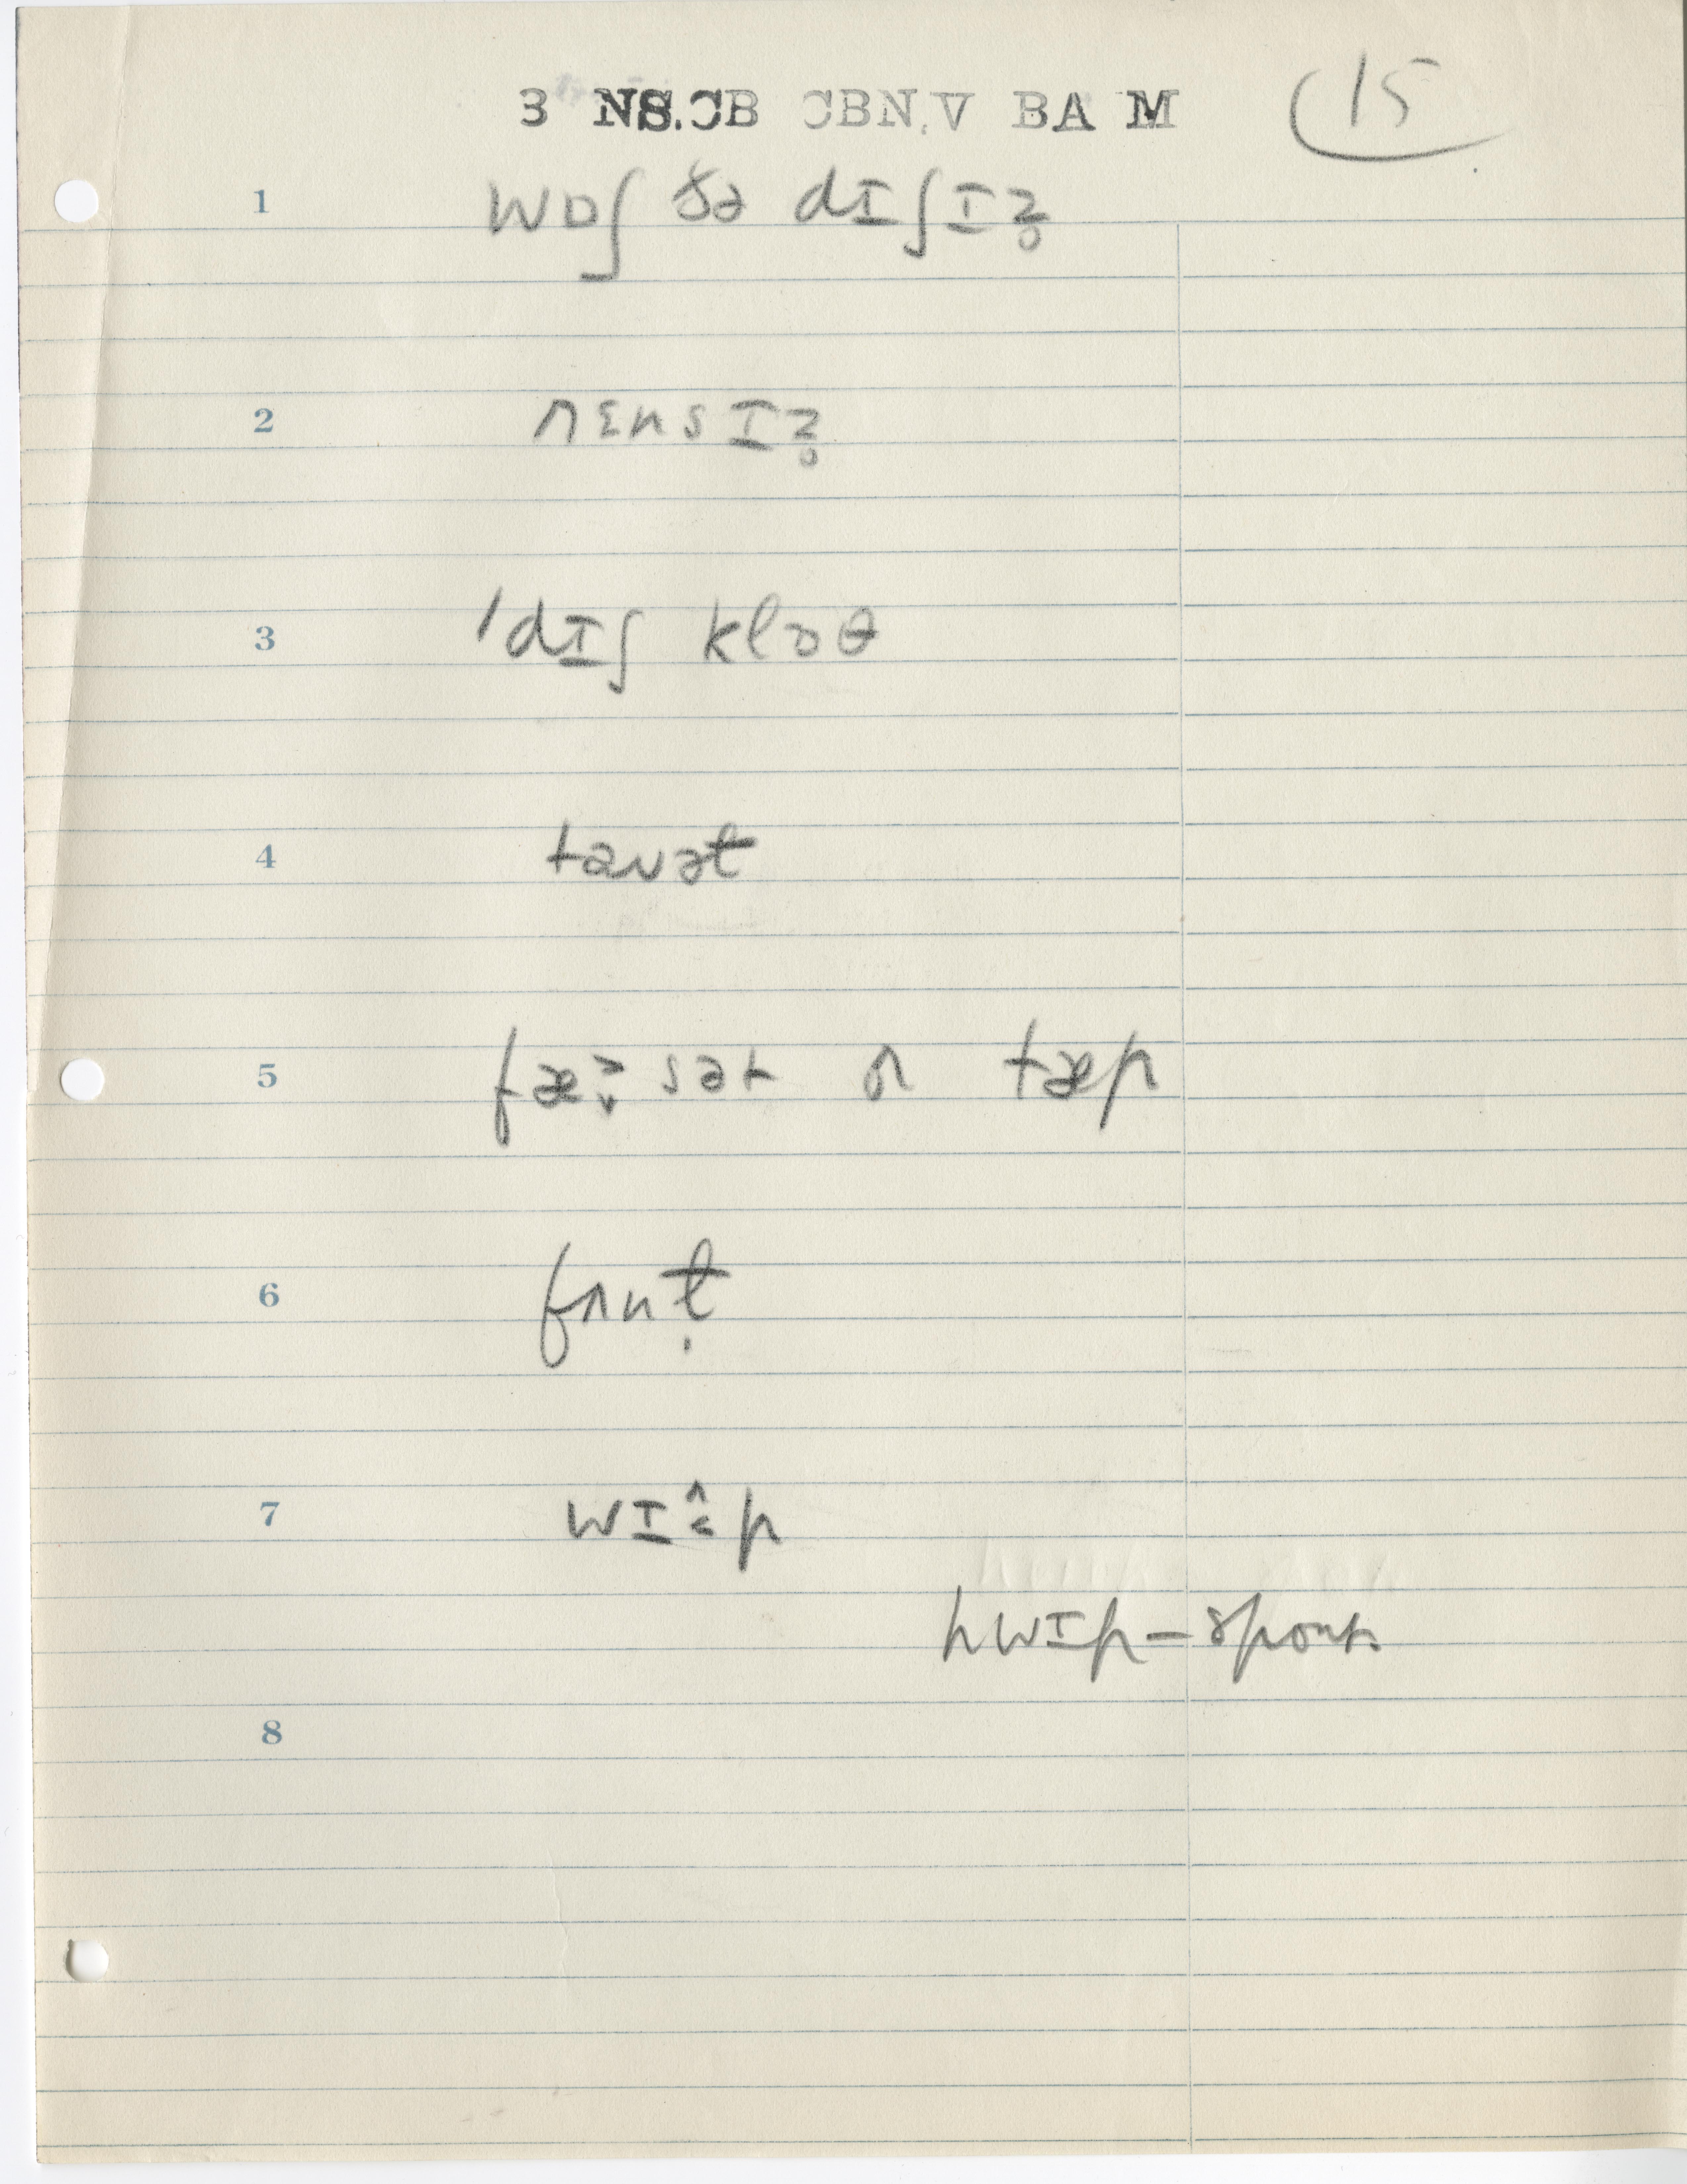 3 NS.CB CBN.V BA M 15
1 wɒʃ ðə dɪʃɪz̥
2 rɛnsɪz̥
3 ˈdɪʃ klɔθ
4 taʊət
5 fæ:sət ɒ tæp
6 fʌnt̬
7 wɪ:p
hwɪp – spont.
8